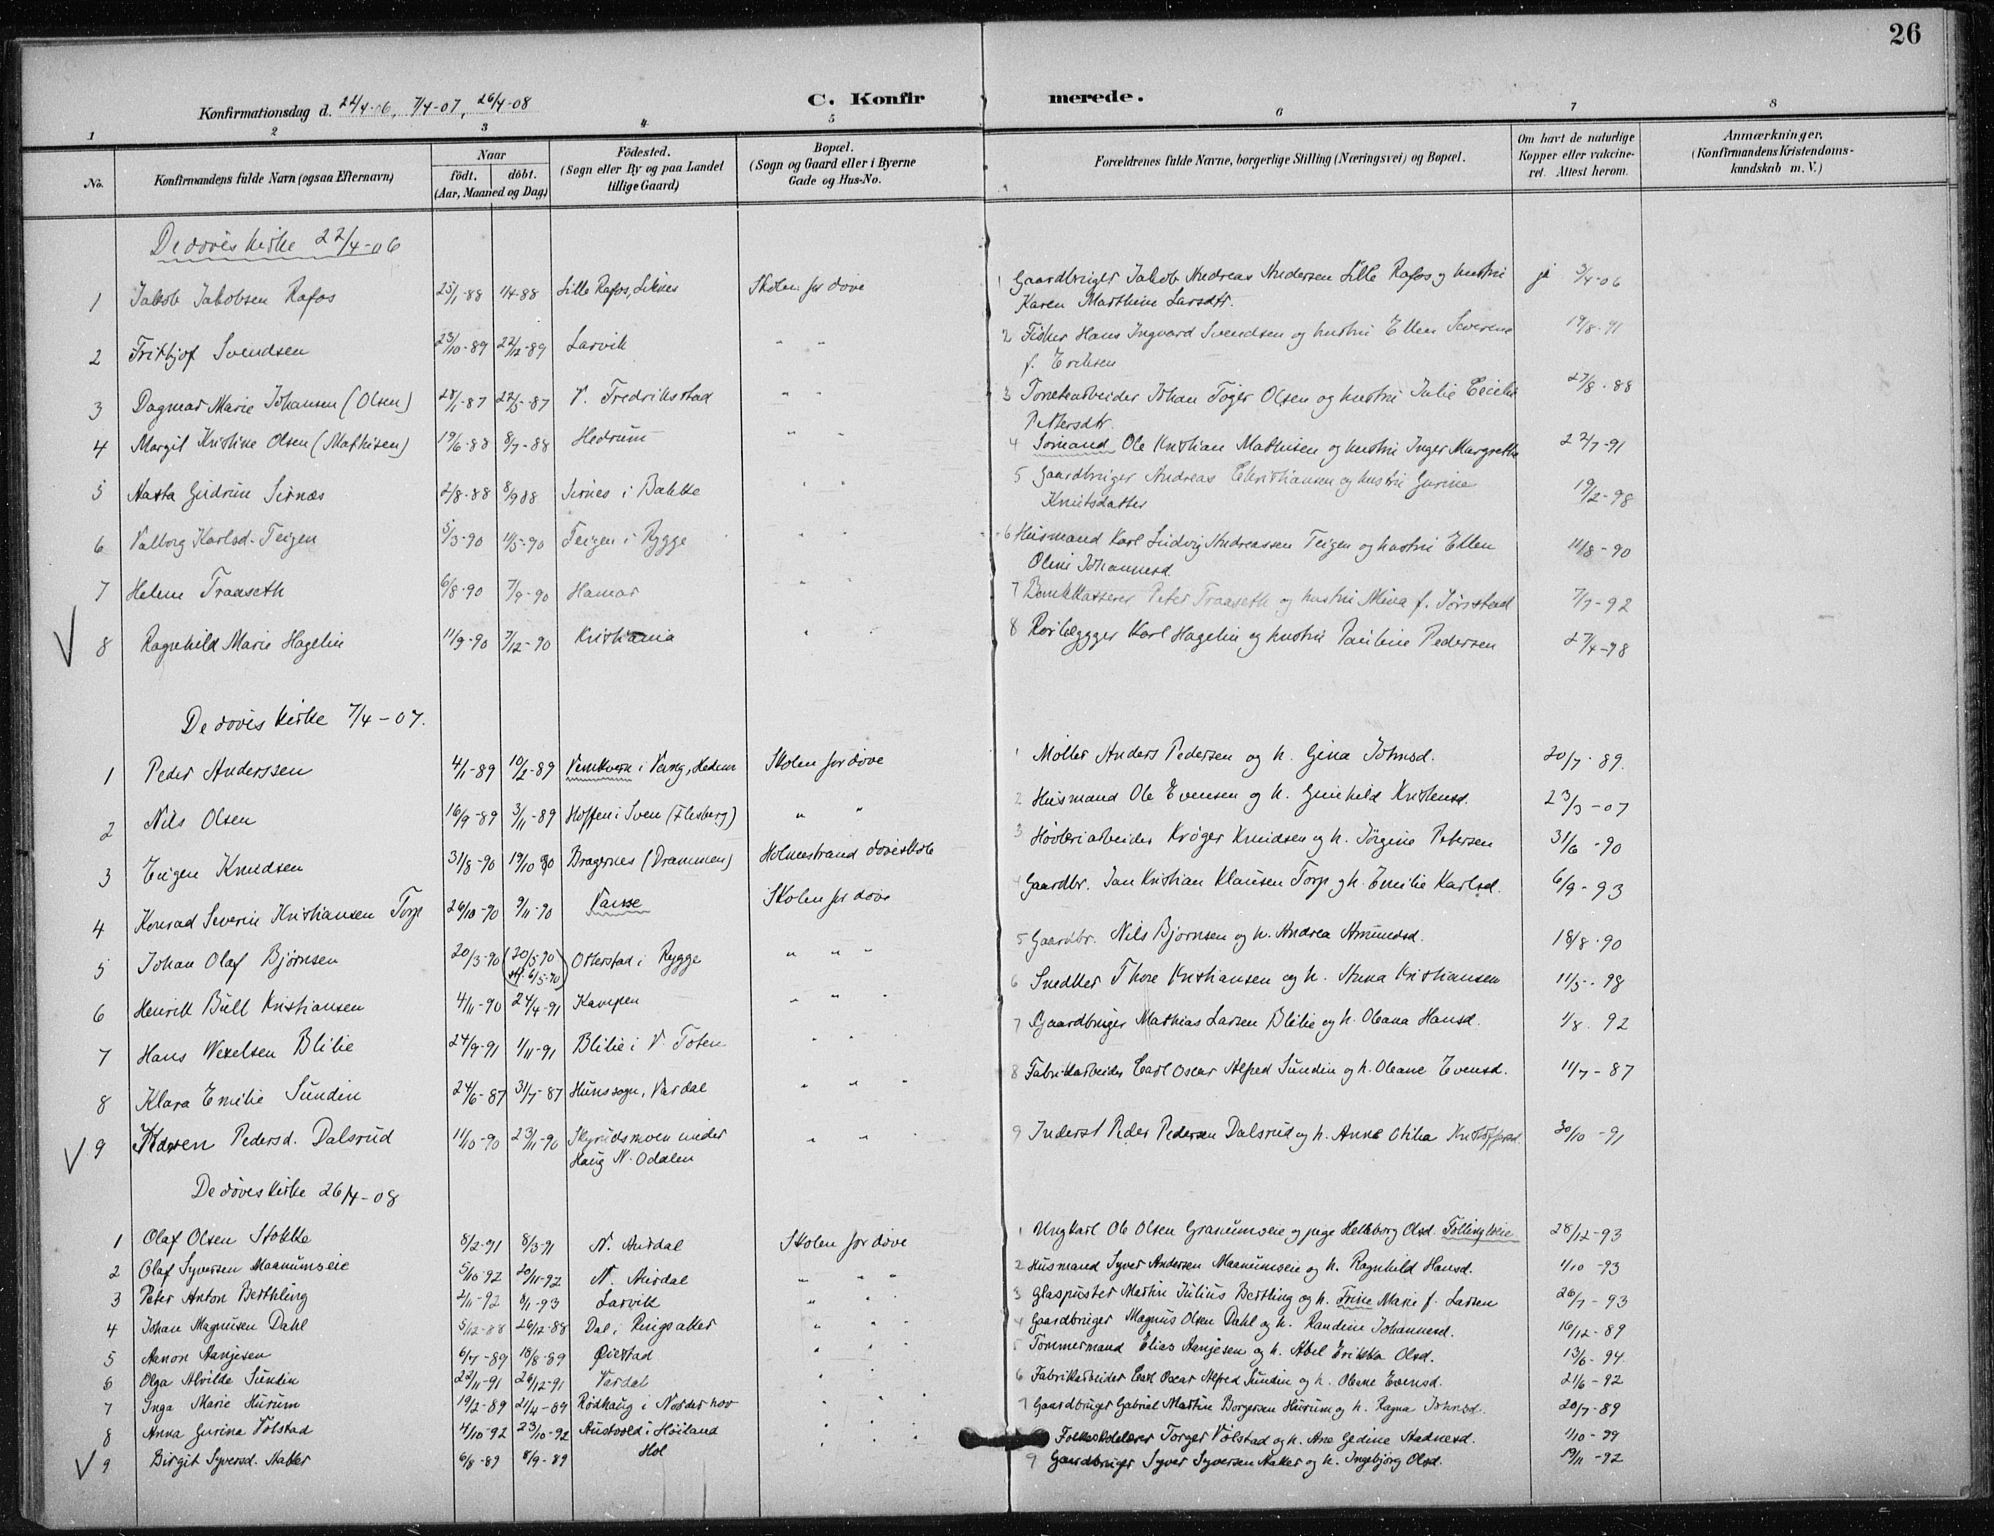 26
Konfirmationsdag d. 22/4-06, 7/4-07, 26/4-08
C. Konfirmerede.
1 2 3 4 5 6 7 8
No.
Konfirmandens fulde Navn (ogsaa Efternavn)
Naar
født. døbt.
(Aar, Maaned og Dag)
Fødested.
(Sogn eller By og paa Landet
tillige Gaard)
Bopæl.
(Sogn og Gaard eller i Byerne
Gade og Hus-No.
Forældrenes fulde Navne, borgerlige Stilling (Næringsvei) og Bopæl.
Om havt de naturlige
Kopper eller vakcine-
ret. Attest herom.
Anmærkninger,
(Konfirmandens Kristendoms-
kundskab m. V.)
De døves kirke 22/4-06
1 Jakob Jakobsen Rafos 25/1-88 1/4-88 Lille Rafos, Liknes Skolen for døve 1 Gaardbruger Jakob Andreas Andersen Lille Rafos og hustru ja 3/4-06
Karen Marthine Larsdtr.
2 Frithjof Svendsen 23/10-89 22/12-89 Larvik " " 2 Fisker Hans Ingvard Svendsen og hustru Ellen Severine 19/8-91
f. Eriksen
3 Dagmar Marie Johansen (Olsen) 28/1-87 22/5-87 V. Fredrikstad " " 3 Tomtearbeider Johan Tøger Olsen og hustru Julie Cecilie 27/8-88
Pettersdtr.
4 Margit Kristine Olsen (Mathisen) 19/6-88 8/7-88 Hedrum " " 4 Sømand Ole Kristian Mathisen og hustru Inger Margrethe 22/7-91
5 Aasta Gudrun Sirnæs 2/8-88 8/9 88 Sirnes i Bakke " " 5 Gaardbruger Andreas Christiansen og hustru Gurine 19/2-98
Knutsdatter
6 Valborg Karlsd. Teigen 5/3-90 11/5-90 Teigen i Rygge " " 6 Husmand Karl Ludvig Andreassen Teigen og hustru Ellen 11/8-90
Oline Johannesd.
7 Helene Traaseth 6/8-90 7/9-90 Hamar " " 7 Bankkasserer Peter Traaseth og hustru Mina f. Jønstad 7/7-92
8 Ragnhild Marie Hagelin 11/9-90 7/12-90 Kristiania " " 8 Rørlægger Karl Hagelin og hustru Pauline Pedersen 27/4-98
De døves kirke 7/4-07.
1 Peder Anderssen 4/1-89 10/2-89 Venkvern i Vang, Hedem Skolen for døve 1 Møller Anders Pedersen og h. Gina Johnsd. 20/7-89.
2 Nils Olsen 16/9-89 3/11-89 Hoffen i Sven (Flesberg) " 2 Husmand Ole Evensen og h. Gunhild Kristensd. 23/3-07
3 Eugen Knudsen 31/8-90 19/10 90 Bragernes (Drammen) Holmestrand døveskole 3 Høvleriarbeider Krøger Knudsen og h. Jørgine Petersen 31/6-90
4 Konrad Severin Kristiansen Torp 26/10-90 9/11-90 Vanse Skolen for døve 4 Gaardbr. Jan Kristian Klausen Torp og h. Emilie Karlsd. 6/9-93
5 Johan Olaf Bjørnsen 20/3-90 (20/5-90 Otterstad i Rygge " " 5 Gaardbr. Nils Bjørnsen og h. Andrea Amundsd. 18/8-90
6/5-90)
6 Henrik Bull Kristiansen 4/11-90 24/4-91 Kampen " " 6 Snedker Thore Kristiansen og h. Anna Kristiansen 11/5-98
7 Hans Wexelsen Blilie 24/9-91 1/11-91 Blilie i V. Toten " " 7 Gaardbruger Mathias Larsen Blilie og h. Oleana Hansd. 1/8. 92
8 Klara Emilie Sundin 24/6-87 31/7-87 Hunssogn, Vardal " " 8 Fabrikarbeider Carl Oscar Alfred Sundin og h. Oleane Evensd. 11/7-87
9 Karen Pedersd. Dalsrud 11/10-90 23/11-90 Skyrudsmoen under " " 9 Inderst Peder Pedersen Dalsrud og h. Anne Otilia Kristoffersd. 30/10-91
Haug N. Odalen
De døves kirke 26/4-08
1 Olaf Olsen Stokke 8/2-91 8/3-91 N. Aurdal Skolen for døve 1 Ungkarl Ole Olsen Granumseie og pige Helleborg Olsd. 28/12-93
2 Olaf Syversen Maanumseie 5/10-92 20/11-92 N. Aurdal " " 2 Husmand Syver Andersen Maanumseie og h. Ragnhild Hansd. 1/10-93
3 Peter Anton Berthling 2/11-92 8/1-93 Larvik " " 3 Glaspuster Martin Julius Bertling og h. Trine Marie f. Larsen 26/7-93
4 Johan Magnusen Dahl 5/12-88 26/12-88 Dal i Ringsaker " " 4 Gaardbruger Magnus Olsen Dahl og h. Randine Johannesd. 16/12-89
5 Aanon Aanjesen 6/7-89 18/8-89 Øiestad " " 5 Tømmermand Elias Aanjesen og h. Abel Erikka Olsd. 13/6-94.
6 Olga Alvilde Sundin 22/11-91 26/12-91 Vardal " " 6 Fabrikarbeider Carl Oscar Alfred Sundin og h. Oleane Evensd. 21/6-92
7 Inga Marie Hurum 19/2-89 21/4-89 Rødhaug i Nordenhov " " 7 Gaardbruger Gabriel Martin Borgersen Hurum og h. Ragna Johnsd. 20/7-89
8 Anna Gurina Vølstad 4/10-92 23/10-92 Austvold i Høiland " " Folkeskolelærer Torger Vølstad og h. Ane Gedine Aadnesd. 1/10-99
9 Birgit Syversd. Aaker 6/8-89 8/9-89 Hol 9 Gaardbruger Syver Syversen Aaker og h. Ingebjørg Olsd. 19/11-92